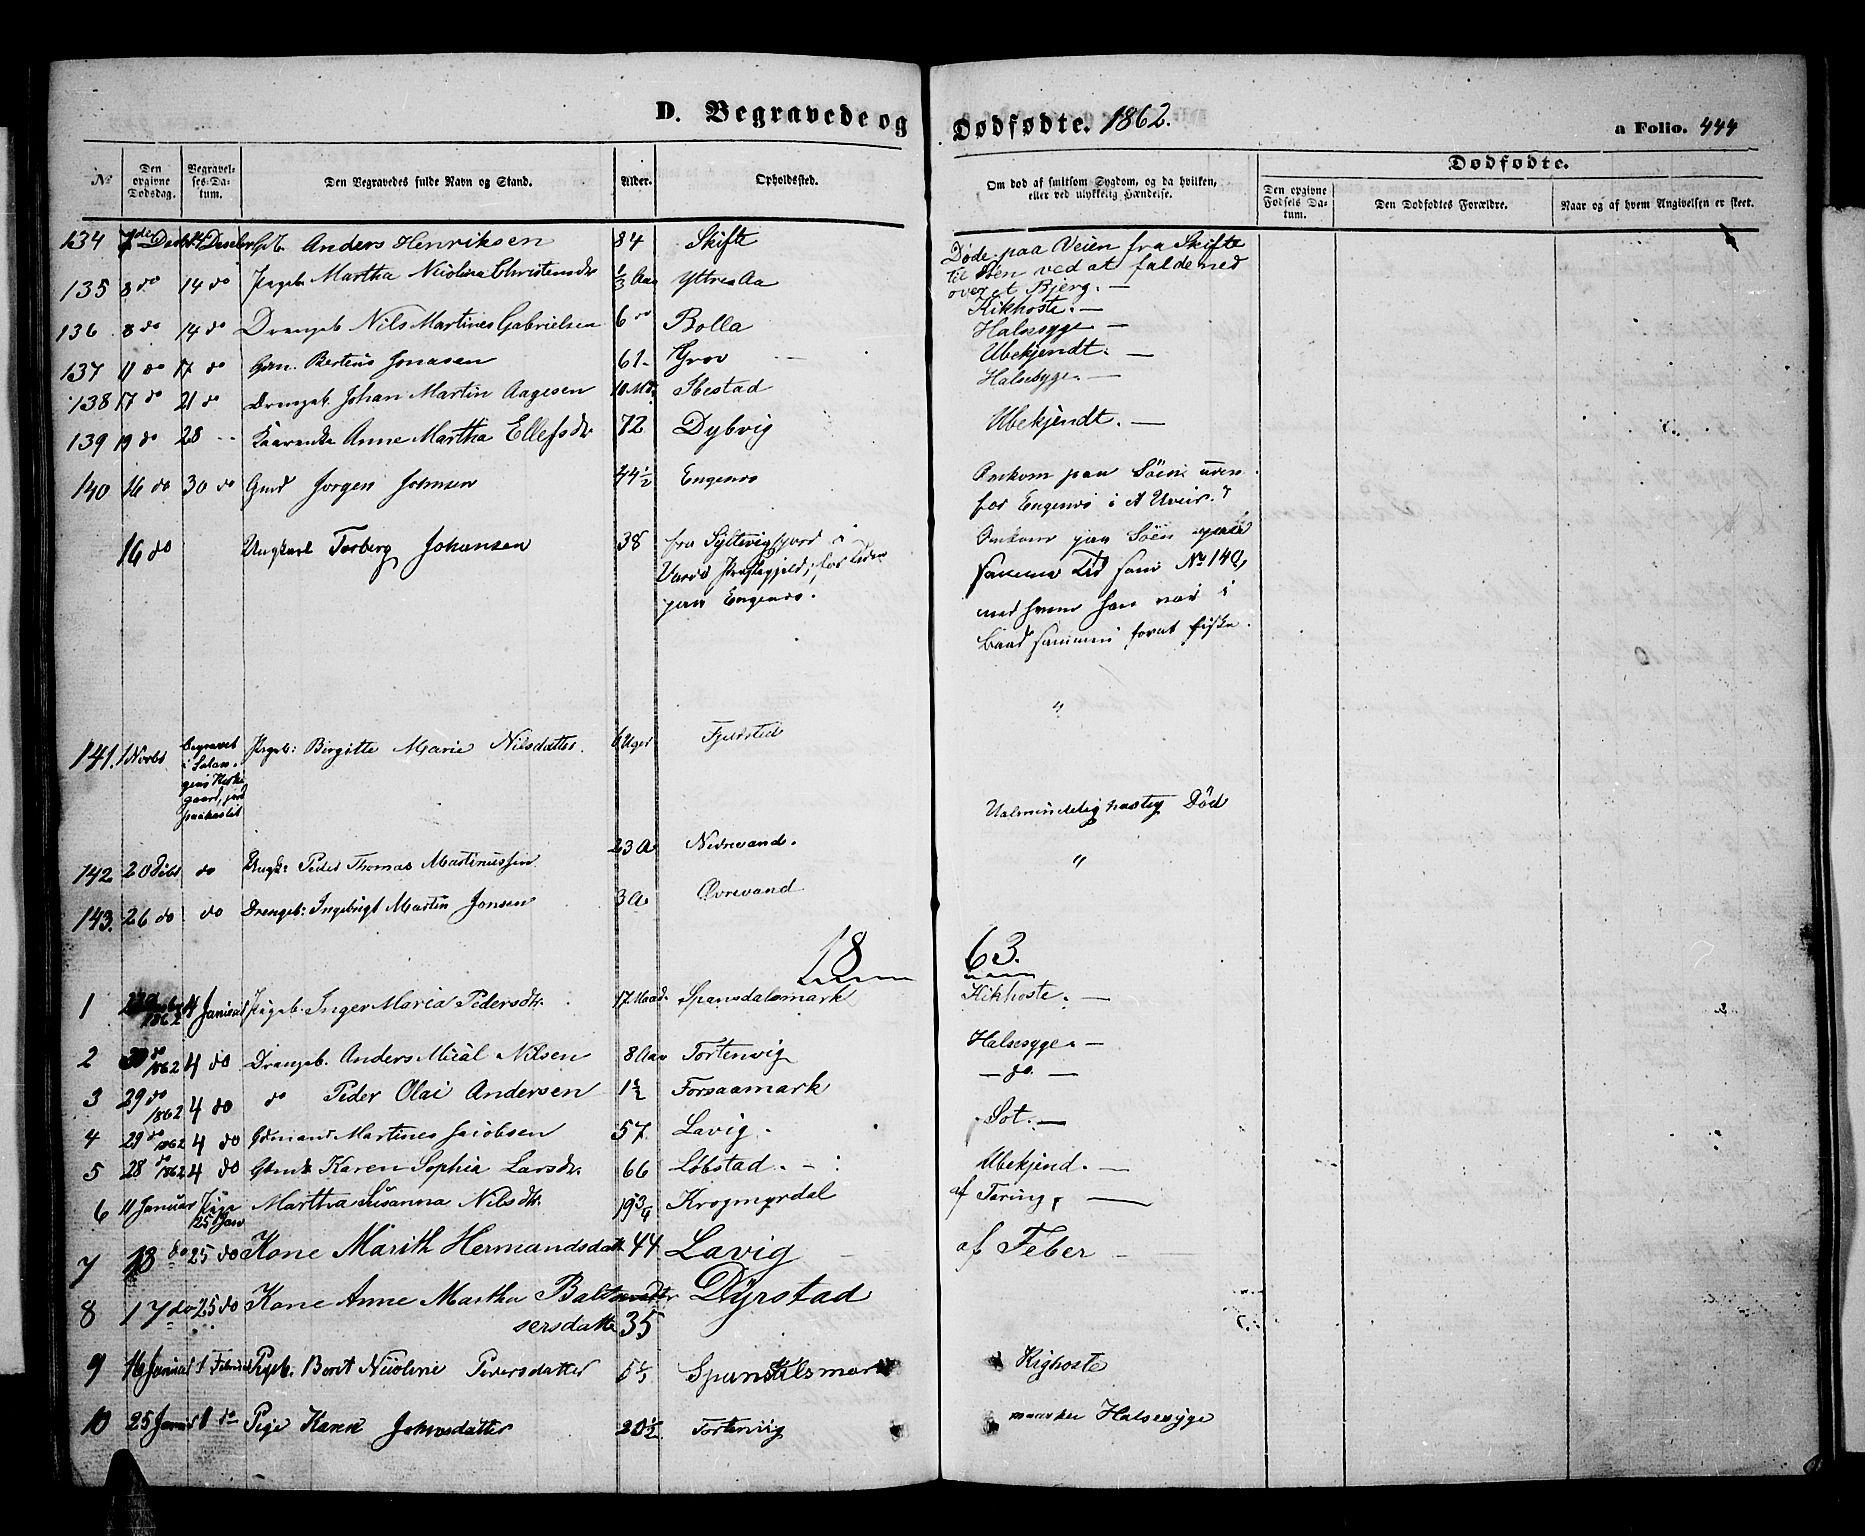 D. Begravede og Dødfødte. 1862.
a Folio. 444
No
Den opgivne Dødsdag.
Begravelses-Datum.
Den Begravedes fulde Navn og Stand.
Alder.
Opholdssted.
Om død af smitsom Sygdom, og da hvilken, eller ved ulykkelig Hændelse.
Dødfødte.
Den opgivne Fødsels Datum.
Den Dødfødtes Forældre.
Naar og af hvem Angivelsen er skeet.
134 7de Decbr 14 Decbr Anders Henriksen 84 Skifte Døde paa Veien fra Skifte
til Søen ved at falde ned
over et Bjerg. —
135 8 do 14 do Pigeb. Martha Nicolina Christensdr 1/3 Aar Yttre Aa Kikhoste. —
136 8 do 14 do Drengeb Nils Martines Gabrielsen 6 do Bolla Halsesyge —
137 11 do 17 do Gm. Bertius Jonasen 61 - Grov Ubekjendt. —
138 17 do 21 do Drengeb. Johan Martin Aagesen 10 Md. Ibestad Halsesyge. —
139 19 do 28 - Kaarenke Anne Martha Ellefsdr 72 Dybvig Ubekjendt. —
140 16 do 30 do Gmd Jørgen Johnsen 44 1/2 Engenes Omkom paa Søen uden
for Engenes i et Uveir.
16 do Ungkarl Torberg Johansen 38 fra Syltevigfjord i
Vardø Præstegjeld, for tiden
paa Engenes.
Omkom paa Søen paa
samme Tid som No 140,
med hvem han var i
Baad sammen forat fiske.
141. 1 Novbr Begravet
i Salan-
gens Kirke
gaard, jord
paakastet
Pigeb: Birgitte Marie Nilsdatter. 6 Uger Fjeldsted "
142 20 Febr do Ungk: Peder Thomas Martinussen 23 A Nedrevand. Ualmindelig hastig Død
143. 26 do do Drengeb: Ingebrigt Martin Jonsen 3 A Øvrevand "
18 63.
1 1862 4 Januar Pigeb. Inger Maria Pedersdr. 17 Maad. Spansdalsmark Kikhoste. —
2 30 do 1862 4 do Drengeb. Anders Mical Nilsen 8 Aar Tortenvig Halsesyge. —
3 29 do 1862 4 do do Peder Olai Andersen 1 1/2 Forsaamark — do. —
4 29 do 1862 4 do Gdmand Martines Jacobsen 57. Lavig. Sot. —
5 28 do 1862 4 do Gdmk Karen Sophia Larsdr. 66 Løbstad. - Ubekjend. —
6 11 Januar Pige 25 Jan Martha Susanna Nilsdtr. 19 3/4 Krogmyrdal af Tæring, —
7 18 do 25 do Kone Marith Hermandsdatt 44 Lavig af Feber —
8 17 do 25 do Kone Anne Martha Balt
sersdatte 35 Dyrstad
9 16 Januar 1 Februar Pigeb. Berit Nicoline Pedersdatter 5 1/3 Kighoste
10 25 Januar 1 do Pige Karen Johnsdatter 20 1/2 Tortenvig maaskee Halsesyge